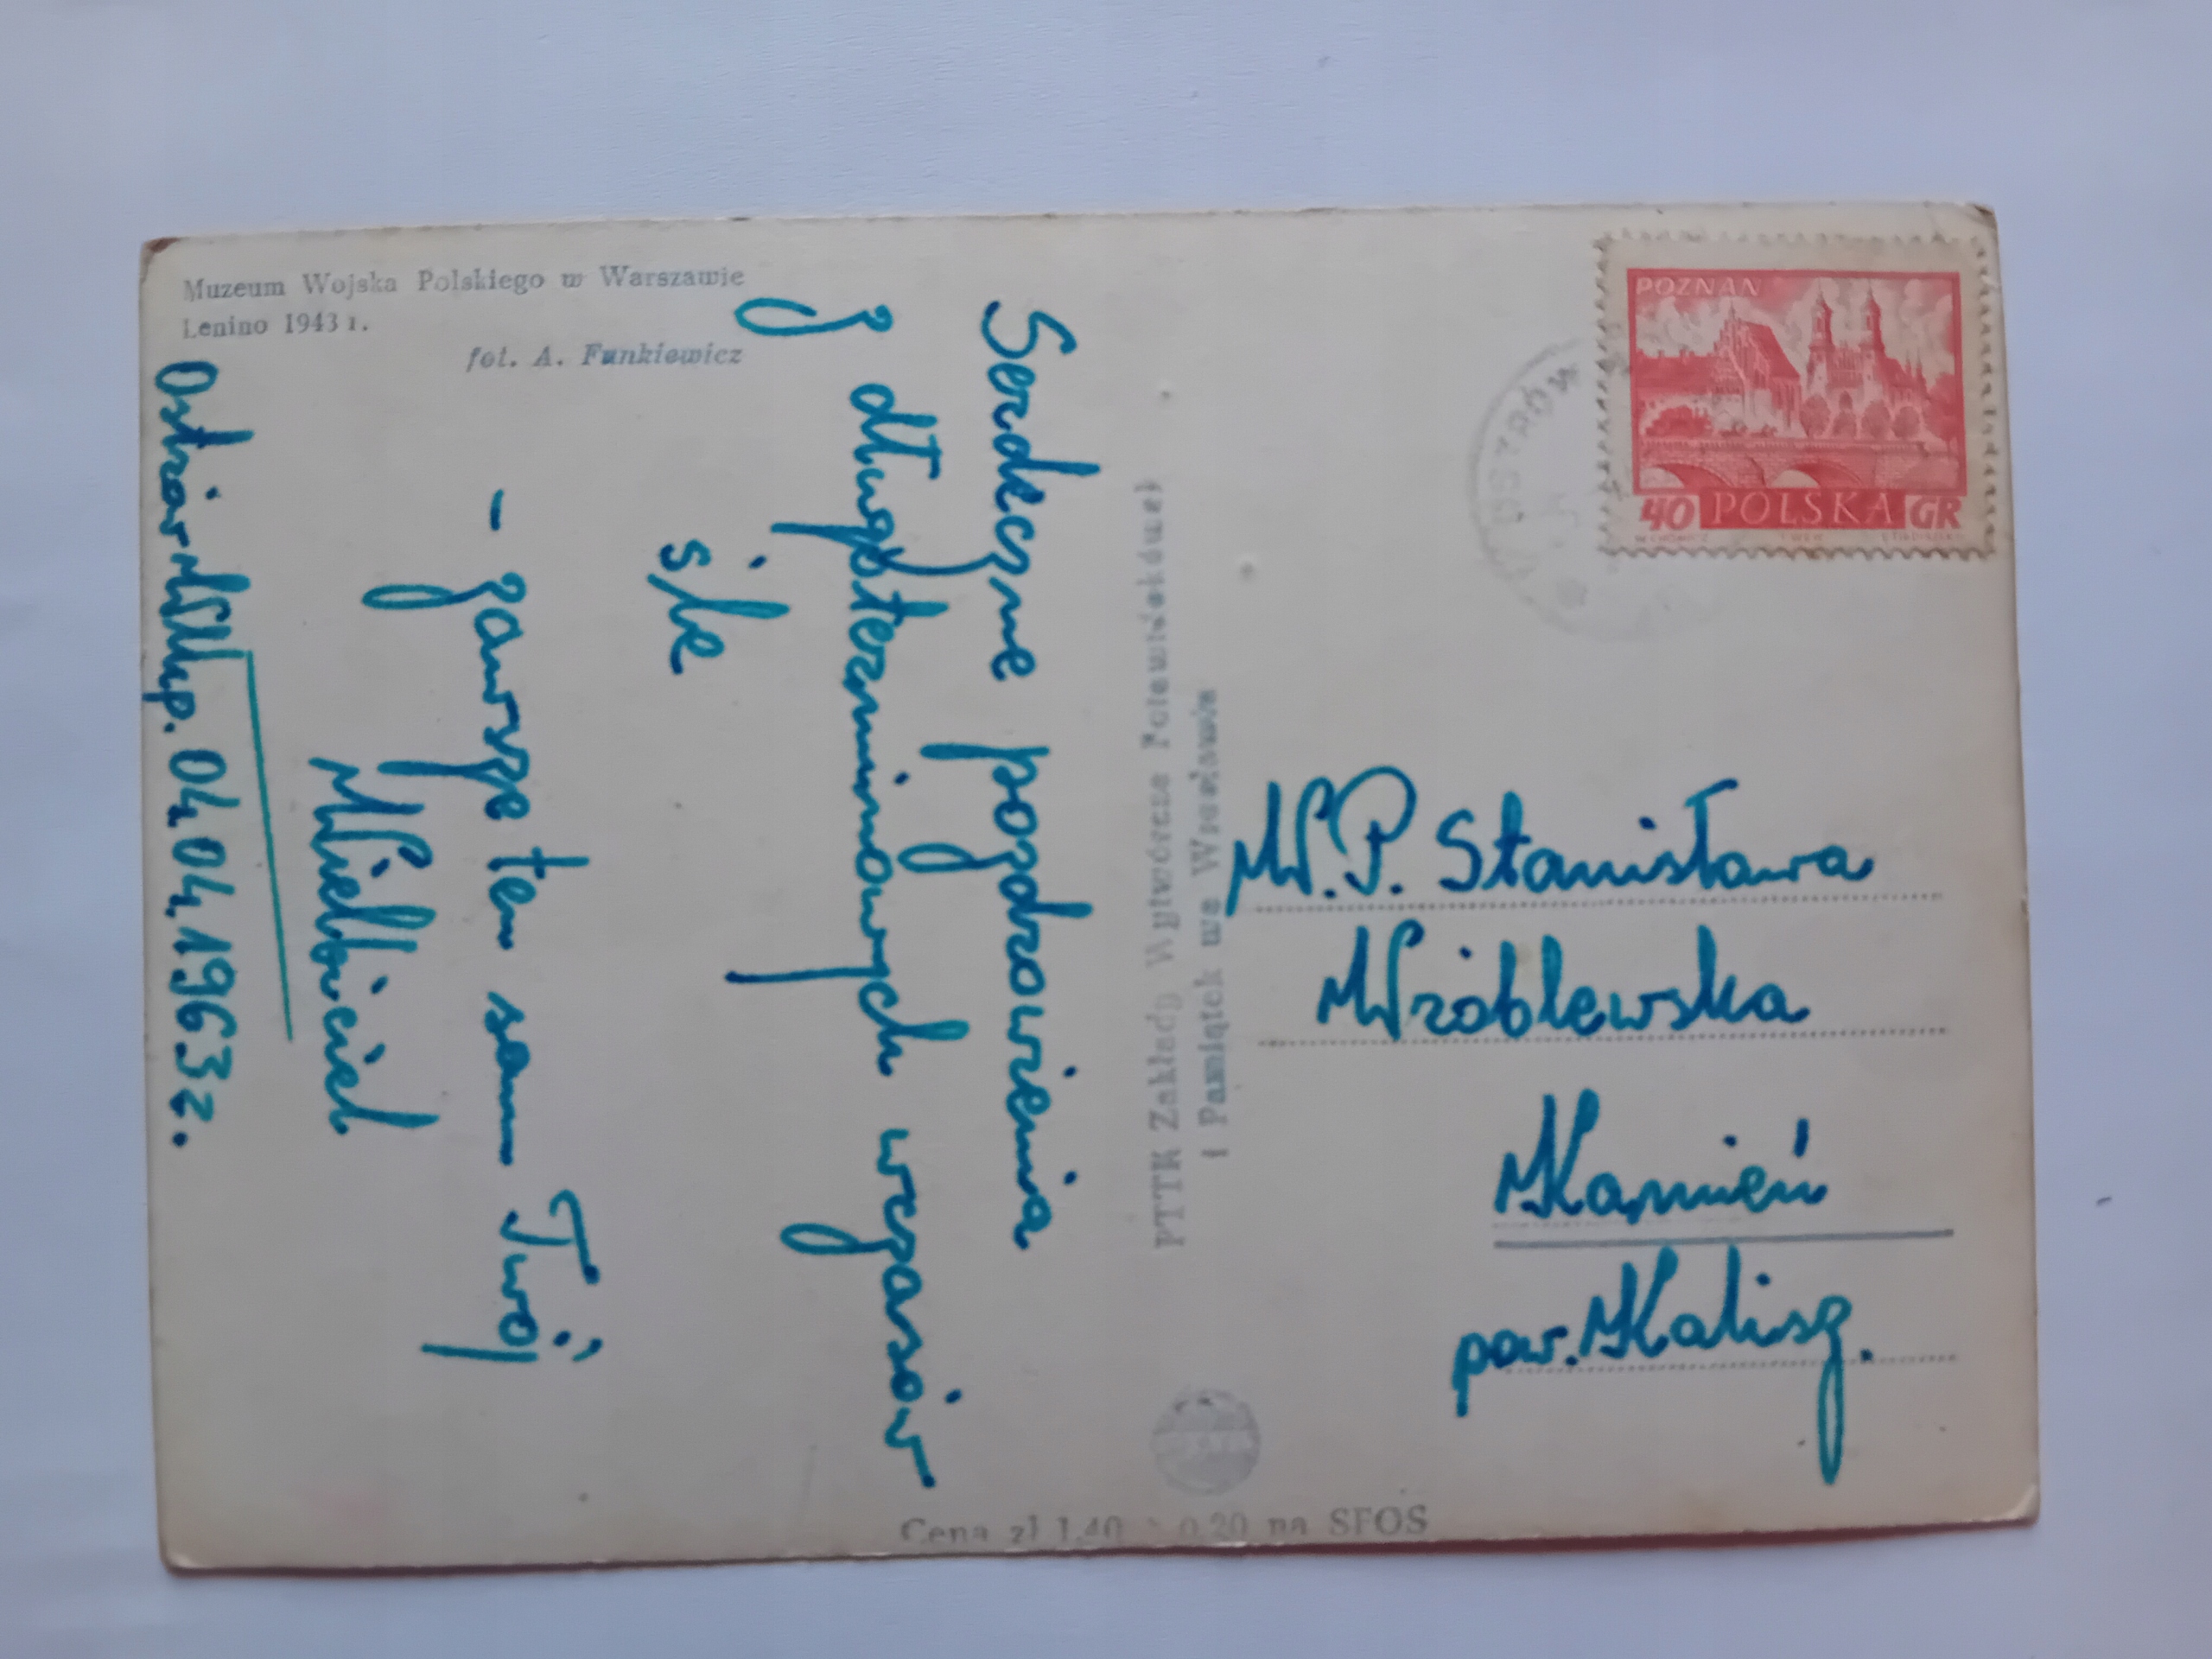 Muzeum Wojska Polskiego w Warszawie
Lenino 1943 r.
fot. A. Funkiewicz
Serdeczne pozdrowienia
z długoterminowych wczasów
śle
- zawsze ten sam Twój
Wielbiciel
04.04.1963r.
PTTK Zakłady Wytwórcze
i Pamiątek we Wrocławiu
POZNAŃ
40 POLSKA GR
W.P. Stanisława
Wróblewska
Kamień
pow. Kalisz.
Cena zł 1.40 0.20 na SFOS